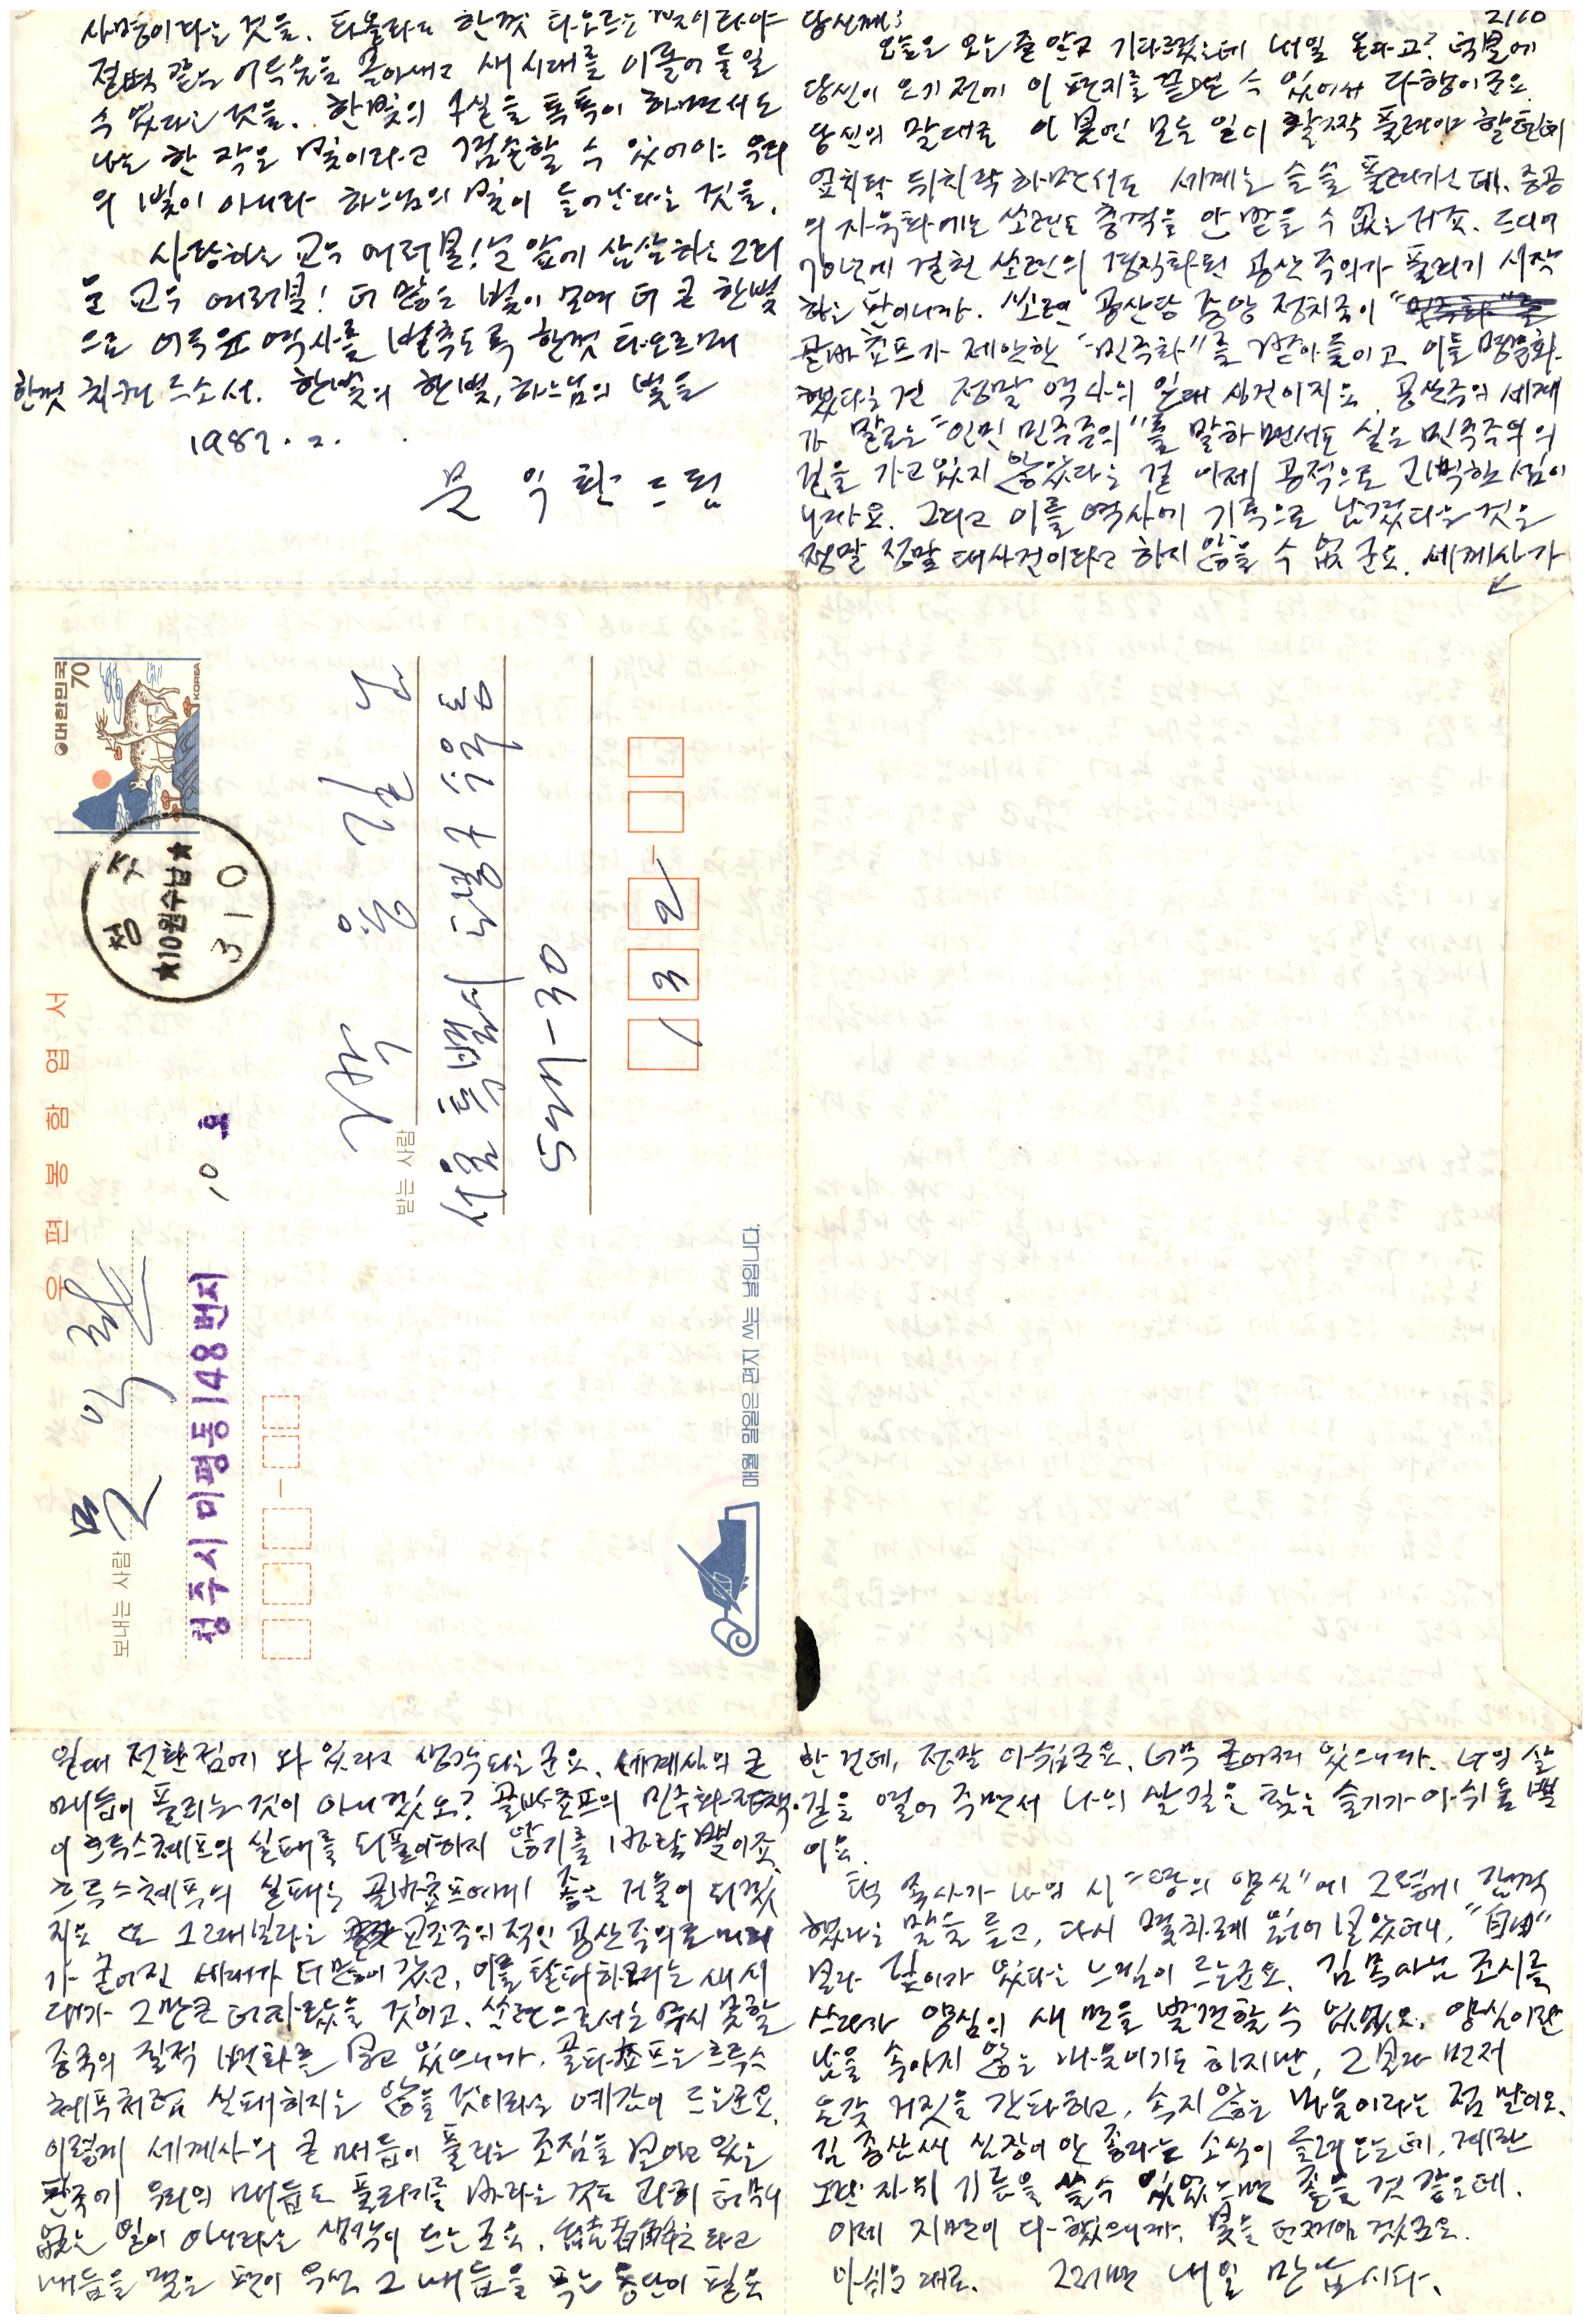 사명이라는 것을. 타올라도 한껏 타오르는 빛이라야
절벽 같은 어두움을 몰아내고 새 시대를 이끌어 들일
수 있다는 것을. 한빛의 구실을 톡톡이 하면서도
나는 한 작은 빛이라고 겸손할 수 있어야 우리
의 빛이 아니라 하느님의 빛이 들어난다는 것을.
사랑하는 교우 여러분! 눈 앞에 삼삼하는 그리
운 교우 여러분! 더 많은 빛이 모여 더 큰 한빛
으로 어두운 역사를 비추도록 한껏 타오르며
한껏 외쳐 주소서. 한빛의 한빛, 하느님의 빛을
1987. 2.
문 익 환 드림
당신께: 2/10
오늘은 오는 줄 알고 기다렸는데 내일 온다고? 덕분에
당신이 오기 전에 이 편지를 끝낼 수 있어서 다행이군요.
당신의 말대로 이 봄엔 모든 일이 활짝 풀려야 할텐데
엎치락 뒤치락 하면서도 세계는 슬슬 풀려가는데. 중공
의 자유화에는 쏘련도 충격을 안 받을 수 없는 거죠. 드디어
70년에 걸친 쏘련의 경직화된 공산주의가 풀리기 시작
하는 판이니까. 쏘련 공산당 중앙 정치국이
골바쵸프가 제안한 "민주화"를 받아들이고 이를 명문화
했다는 건 정말 역사의 일대 사건이지요. 공산주의 세계
가 말로는 "인민 민주주의"를 말하면서도 실은 민주주의의
길을 가고 있지 않았다는 걸 이제 공적으로 고백한 셈이
니까요. 그리고 이를 역사에 기록으로 남겼다는 것은
정말 정말 대사건이라고 하지 않을 수 없군요. 세계사가
대한민국 70 KOREA
청주 ★10원수납★ 310
우편봉함엽서
보내는 사람
문 익 환
청주시 미평동 148번지
10 호
받는 사람
박 용 길 님
서울 특별시 도봉구 수유동
527-30
132-
매월 말일은 편지 쓰는 날입니다.
일대 전환점에 와 있다고 생각되는군요. 세계사의 큰
매듭이 풀리는 것이 아니겠소? 골바쵸프의 민주화 정책
이 흐루스체프의 실패를 되풀이하지 않기를 바랄 뿐이죠.
흐루스체프의 실패는 골바쵸프에게 좋은 거울이 되겠
지요. 또 그때보다는 교조주의적인 공산주의로 머리
가 굳어진 세대가 더 많이 갔고, 이를 탈피하려는 새 시
대가 그만큼 더 자랐을 것이고. 쏘련으로서는 무시 못할
중국의 질적 변화를 보고 있으니까. 골바쵸프는 흐루스
체푸처럼 실패하지는 않을 것이라는 예감이 드는군요.
이렇게 세계사의 큰 매듭이 풀리는 조짐을 보이고 있는
판국에 우리의 매듭도 풀리기를 바라는 것도 과히 터무니
없는 일이 아니라는 생각이 드는군요. 結者解之라고
매듭을 맺은 편이 우선 그 매듭을 푸는 용단이 필요
한 건데, 정말 아쉽군요. 너무 굳어져 있으니까. 너의 살
길을 열어 주면서 나의 살길을 찾는 슬기가 아쉬울 뿐
이요.
했다는 말을 듣고, 다시 몇차례 읽어 보았더니, "自由"
보다 깊이가 있다는 느낌이 드는군요. 김 목사님 조시를
쓰다가 양심의 새 면을 발견할 수 있었소. 양심이란
남을 속이지 않는 마음이기도 하지만, 그보다 먼저
온갖 거짓을 간파하고, 속지 않는 마음이라는 점 말이오.
김 종산새 심장이 안 좋다는 소식이 들려 오는데, 계란
노란 자위 기름을 쓸 수 있었으면 좋을 것 같은데.
이제 지면이 다 찼으니까, 붓을 던져야 겠군요.
아쉬운 대로. 그러면 내일 만납시다.